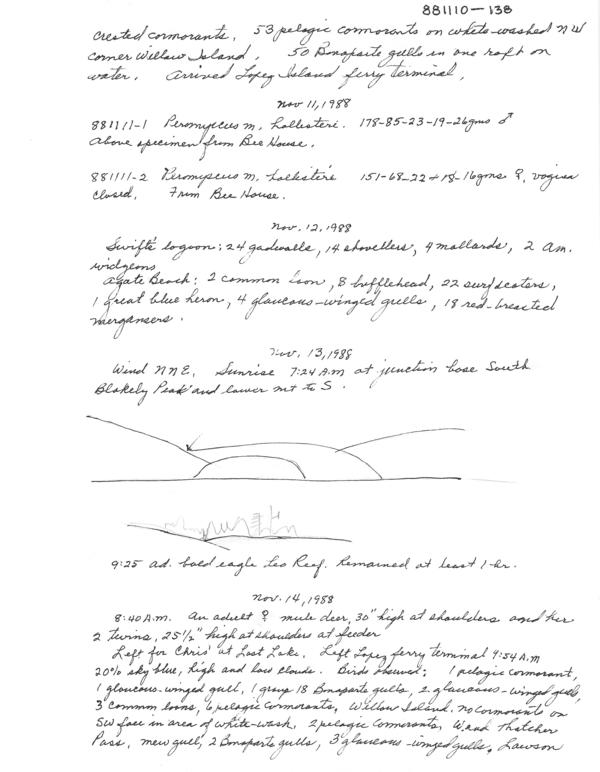 881110-138
crested cormorants, 53 pelagic cormorants on white-washed NW
corner Willow Island, 50 Bonaparte gulls in one raft on
water. Arrived Lopez Island ferry terminal.
Nov 11, 1988
881111-1 Peromyscus m. hollisteri. 178-85-23-19-26gms ♂
Above specimen from Bee House.
881111-2 Peromyscus m. hollisteri 151-68-22-18-16gms ♀, vagina
closed. From Bee House.
Nov. 12, 1988
Swifts lagoon: 24 gadwalls, 14 shovellers, 4 mallards, 2 Am.
widgeons
Agate Beach: 2 common loon, 8 bufflehead, 22 surf scoters,
1 great blue heron, 4 glaucous-winged gulls, 18 red-breasted
mergansers.
Nov. 13, 1988
Wind NNE, Sunrise 7:24 A.M at junction base South
Blakely Peak and lower mt to S.
9:25 ad. bald eagle Reef. Remained at least 1-hr.
Nov. 14, 1988
8:40 A.M. An adult ♀ mule deer, 30" high at shoulders and her
2 twins, 25 1/2" high at shoulders at feeder
Left for Chris' at Lost Lake. Left Lopez ferry terminal 9:54 A.M
20% sky blue, high and low clouds. Birds observed: 1 pelagic cormorant,
1 glaucous-winged gull, 1 group 18 Bonaparte gulls, 2 glaucous-winged gulls,
3 common loons, 6 pelagic cormorants, Willow Island. no cormorants on
SW face in area of white-wash, 2 pelagic cormorants, W. end Thatcher
Pass, mew gull, 2 Bonaparte gulls, 3 glaucous-winged gulls, Lawson